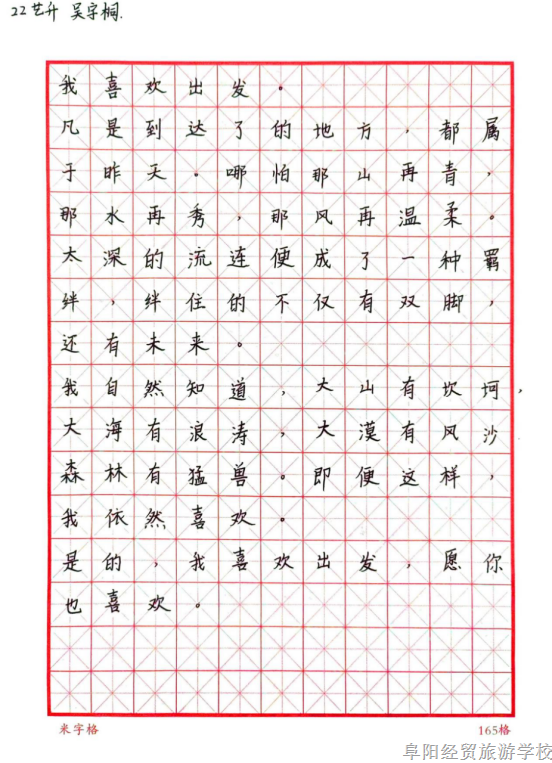 22艺升 吴宇桐.
我喜欢出发。
凡是到达了的地方,都属
于昨天。哪怕那山再青,
那水再秀,那风再温柔。
太深的流连便成了一种羁
绊,绊住的不仅有双脚,
还有未来。
我自然知道,大山有坎坷,
大海有浪涛,大漠有风沙
森林有猛兽。即便这样,
我依然喜欢。
是的,我喜欢出发,愿你
也喜欢。
米字格 165格
阜阳经贸旅游学校